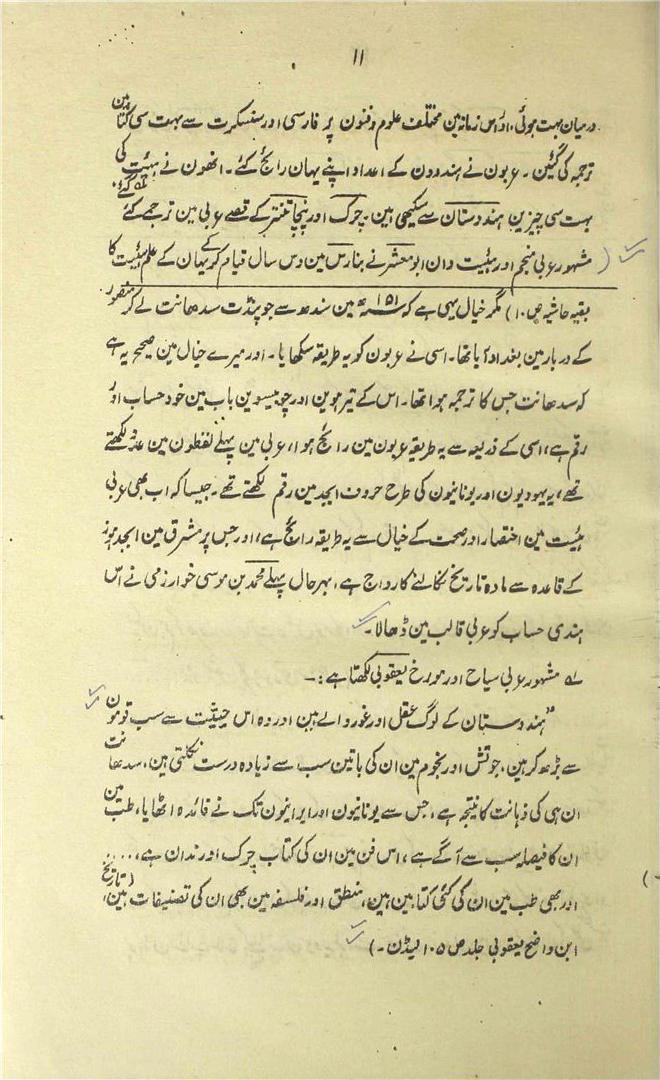 ۱۱
درمیان بہت ہوئی، اور اس زمانہ مین مختلف علوم وفنون پر فارسی اور سنسکرت سے بہت سی کتابین
ترجمہ کی گئین۔ عربون نے ہندوون کے اعداد اپنے یہان رائج کئے۔ انھون نے ہیئت کی
بہت سی چیزین ہندوستان سے سیکھی ہین۔ چرک اور پنچاتنتر کے قصے عربی مین ترجمے کئے گئے،
(مشہور عربی منجم اور ہیئت دان ابو معشر نے بنارس مین دس سال قیام کرکے یہان کے علم ہیئت کا
بقیہ حاشیہ ص ۱۰) مگر خیال یہی ہے کہ ۱۵۱ھ مین سندھ سے جو پنڈت سدھانت لے کر منصور
کے دربار مین بغداد آیا تھا۔ اسی نے عربون کو یہ طریقہ سکھایا۔ اور میرے خیال مین صحیح یہ ہے
کہ سدھانت جس کا ترجمہ ہوا تھا۔ اس کے تیرہوین اور چوبیسوین باب مین خود حساب اور
رقم ہے، اسی کے ذریعہ سے یہ طریقہ عربون مین رائج ہوا، عربی مین پہلے لفظون مین عدد لکھتے
تھے، یہ یہودیون اور یونانیون کی طرح حروف ابجد مین رقم لکھتے تھے۔ جیسا کہ اب بھی عربی
ہیئت مین اختصار اور صحت کے خیال سے یہ طریقہ رائج ہے، اور جس پر مشرق مین ابجد ہوز
کے قاعدہ سے مادہ تاریخ نکالنے کا رواج ہے، بہرحال پہلے محمد بن موسی خوارزمی نے اس
ہندی حساب کو عربی قالب مین ڈھالا۔
لہ مشہور عربی سیاح اور مورخ یعقوبی لکھتا ہے:۔
"ہندوستان کے لوگ عقل اور غور والے ہین اور وہ اس حیثیت سے سب قومون
سے بڑھ کر ہین، جوتش اور نجوم مین ان کی باتین سب سے زیادہ درست نکلتی ہین، سدھانت
ان ہی کی ذہانت کا نتیجہ ہے، جس سے یونانیون اور ایرانیون تک نے فائدہ اٹھایا، طب مین
ان کا فیصلہ سب سے آگے ہے، اس فن مین ان کی کتاب چرک اور ندان ہے،....
اور بھی طب مین ان کی کئی کتابین ہین، منطق اور فلسفہ مین بھی ان کی تصنیفات ہین، (تاریخ
ابن واضح یعقوبی جلد ص ۱۰۵ لیڈن۔)